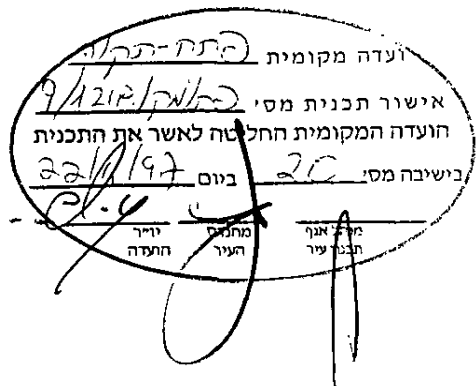 ועדה מקומית פתח-תקוה
אישור תכנית מס׳ פת/מק/1213/9
הועדה המקומית החליטה לאשר את התכנית
בישיבה מס׳ 20 ביום 22/1/97
מנהל אגף מהנדס יו״ר
תכנון עיר העיר הועדה